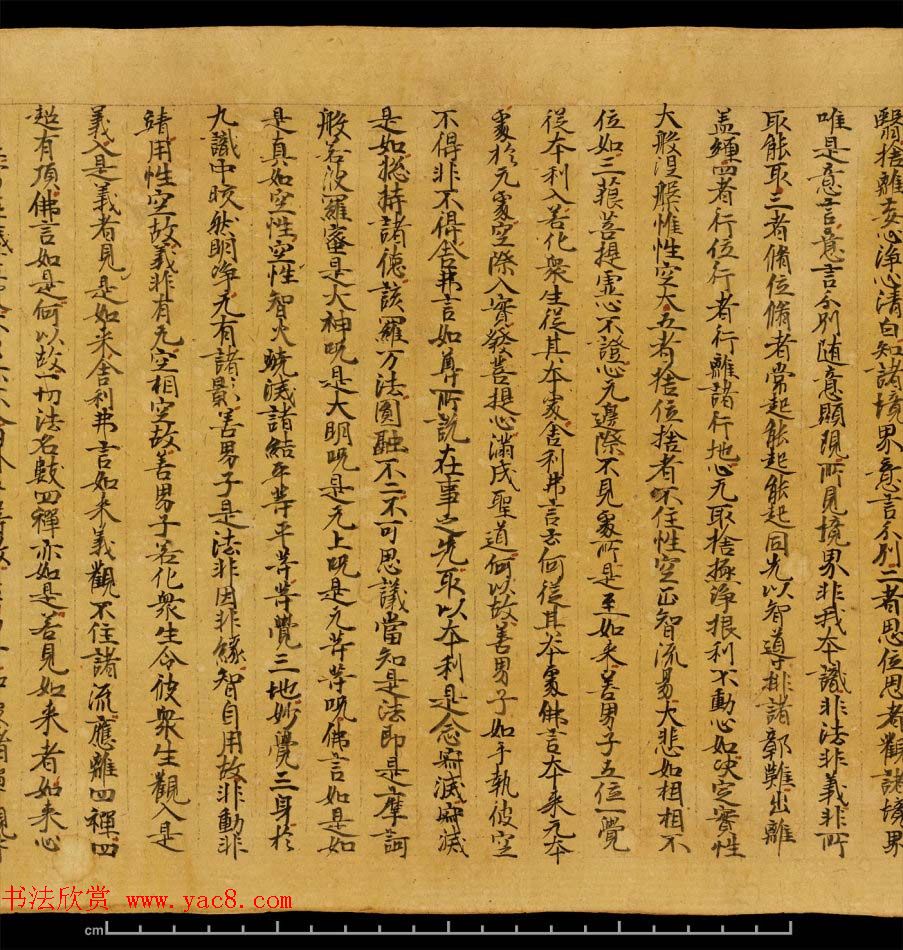 翳捨離妄心淨心清白知諸境界意言分別二者思位思者觀諸境界
唯是意言意言分別随意顯現所見境界非我夲識非法非義非所
取能取三者脩位脩者常起能起能起同先以智道排諸鄣難出離
盖纏四者行位行者行離諸行地心无取捨極淨根利不動心如決定實性
大般涅槃惟性空大五者捨位捨者不住性空正智流易大悲如相相不
位如三藐菩提虛心不證心无邊際不見處所是至如来善男子五位一覺
從夲利入若化衆生從其夲處舍利弗言云何從其夲處佛言夲来无夲
處於无處空際入實發菩提心滿成聖道何以故善男子如手執彼空
不得非不得舍弗言如尊所說在事之先取以夲利是念㝱滅㝱滅
是如揔持諸德該羅万法圓融不二不可思議當知是法即是摩訶
般若波羅蜜是大神呪是大明呪是无上呪是无等等呪佛言如是如
是真如空性空性智火燒滅諸結平等平等等覺三地妙覺三身於
九識中晈然明淨无有諸影善男子是法非因非緣智自用故非動非
靖用性空故義非有无空相空故善男子若化衆生令彼衆生觀入是
義入是義者見是如来舍利弗言如来義觀不住諸流應離四禪四
超有頂佛言如是何以故一切法名數四禪亦如是若見如来者如来心
书法欣赏 www.yac8.com
cm